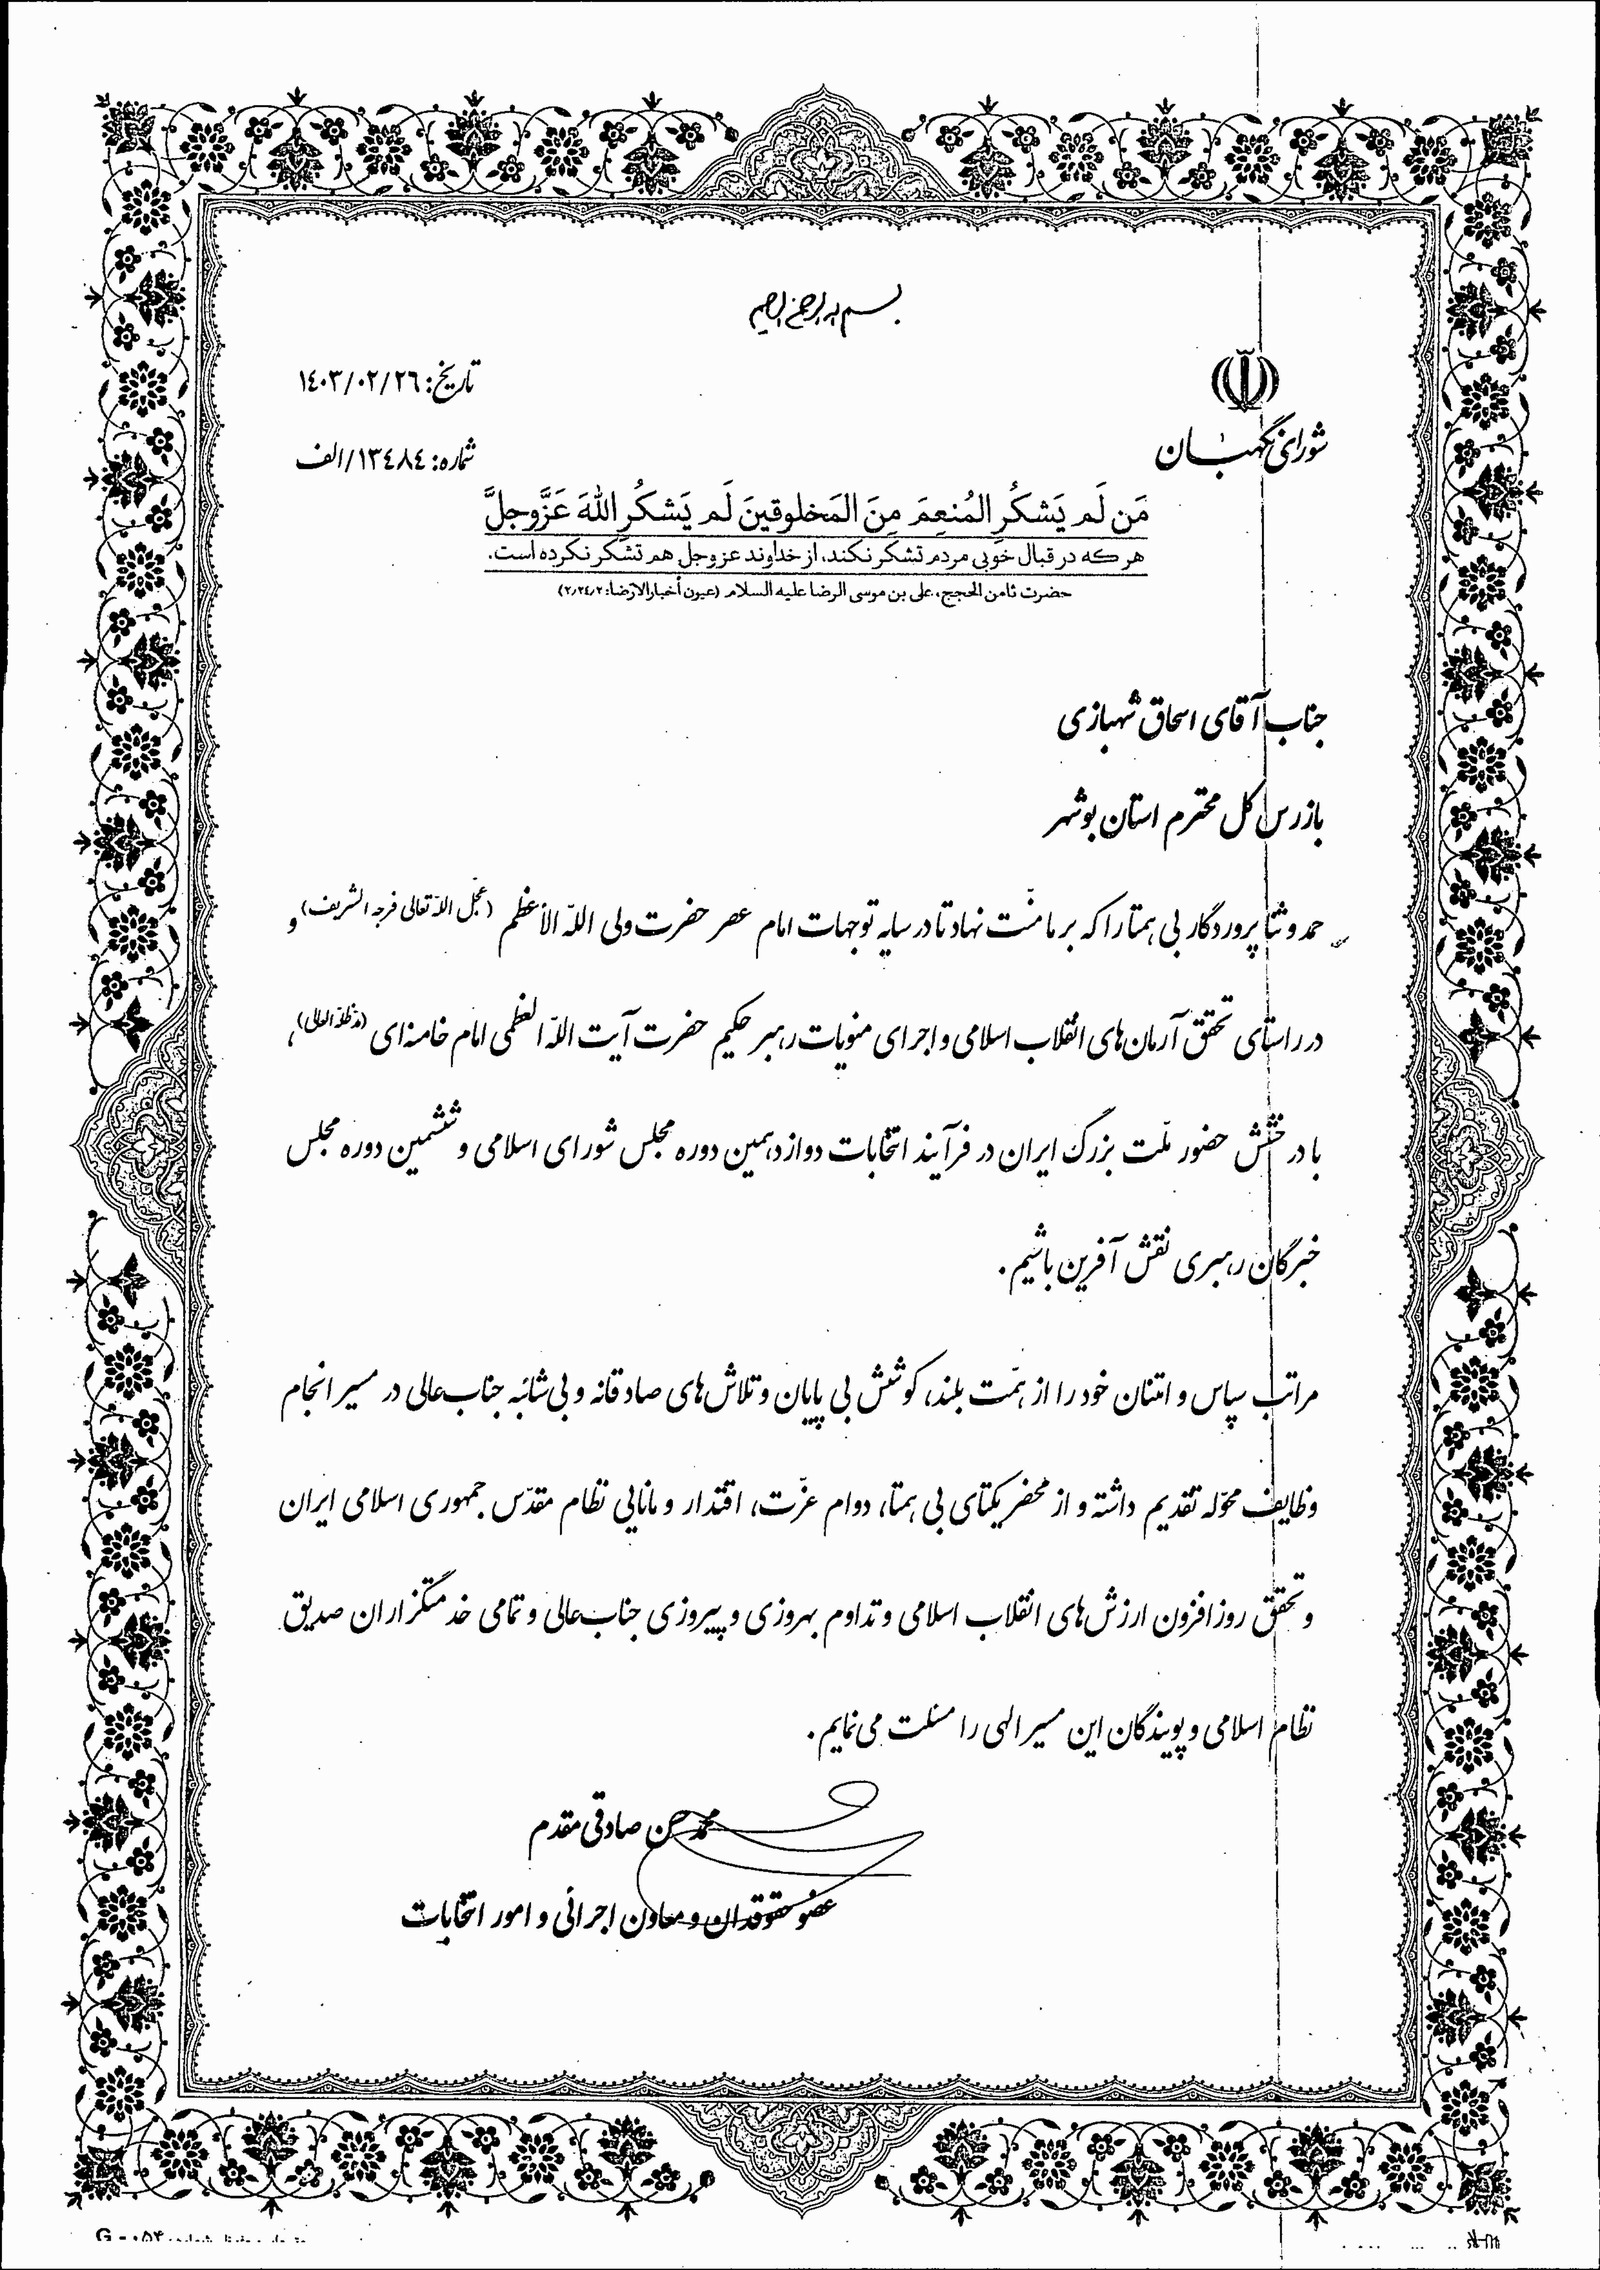 بسم الله الرحمن الرحیم
شورای نگهبان
تاریخ: ۱۴۰۳/۰۲/۲۶
شماره: ۱۳۴۸۴/الف
مَن لَم یَشکُرِ المُنعِمَ مِنَ المَخلوقینَ لَم یَشکُرِ اللهَ عَزَّوجلَّ
هر که در قبال خوبی مردم تشکر نکند، از خداوند عزوجل هم تشکر نکرده است.
حضرت ثامن الحجج، علی بن موسی الرضا علیه السلام (عیون أخبارالارّضا: ۲،۲۴،۲)
جناب آقای اسحاق شهبازی
بازرس کل محترم استان بوشهر
حمد و ثنا پروردگار بی همتا را که بر ما منّت نهاد تا در سایه توجهات امام عصر حضرت ولی اللّه الأعظم (عجّل اللّه تعالی فرجه الشریف) و
در راستای تحقق آرمان‌های انقلاب اسلامی و اجرای منویات رهبر حکیم حضرت آیت اللّه العظمی امام خامنه‌ای (مدّظلّه العالی)،
با درخشش حضور ملّت بزرگ ایران در فرآیند انتخابات دوازدهمین دوره مجلس شورای اسلامی و ششمین دوره مجلس
خبرگان رهبری نقش آفرین باشیم.
مراتب سپاس و امتنان خود را از همّت بلند، کوشش بی پایان و تلاش‌های صادقانه و بی‌شائبه جناب‌عالی در مسیر انجام
وظایف محوّله تقدیم داشته و از محضر یکتای بی همتا، دوام عزّت، اقتدار و مانایی نظام مقدّس جمهوری اسلامی ایران
و تحقق روزافزون ارزش‌های انقلاب اسلامی و تداوم بهروزی و پیروزی جناب‌عالی و تمامی خدمتگزاران صدیق
نظام اسلامی و پویندگان این مسیر الهی را مسئلت می‌نمایم.
محمدحسن صادقی مقدم
عضو حقوقدان و معاون اجرائی و امور انتخابات
G - ۰۵۴